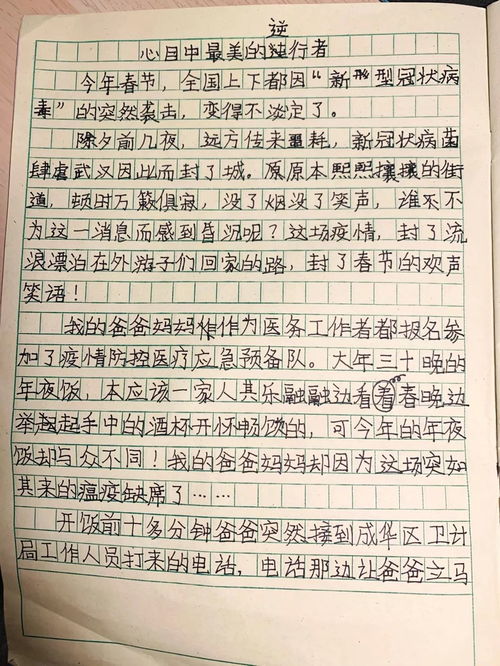 逆
心目中最美的独行者
今年春节，全国上下都因“新型冠状病
毒”的突然袭击，变得不淡定了。
除夕前几夜，远方传来噩耗，新冠状病菌
肆虐武汉因此而封了城。原原本熙熙攘攘的街
道，顿时万籁俱寂，没了烟没了笑声，谁不不
为这一消息而感到昏沉呢？这场疫情，封了流
浪漂泊在外游子们回家的路，封了春节的欢声
笑语！
我的爸爸妈妈作为医务工作者都报名参
加了疫情防控医疗应急预备队。大年三十晚的
年夜饭，本应该一家人其乐融融边看着春晚边
举起手中的酒杯开怀畅饮的，可今年的年夜
饭却与众不同！我的爸爸妈妈却因为这场突如
其来的瘟疫缺席了……
开饭前十多分钟爸爸突然接到成华区卫计
局工作人员打来的电话，电话那边让爸爸立马